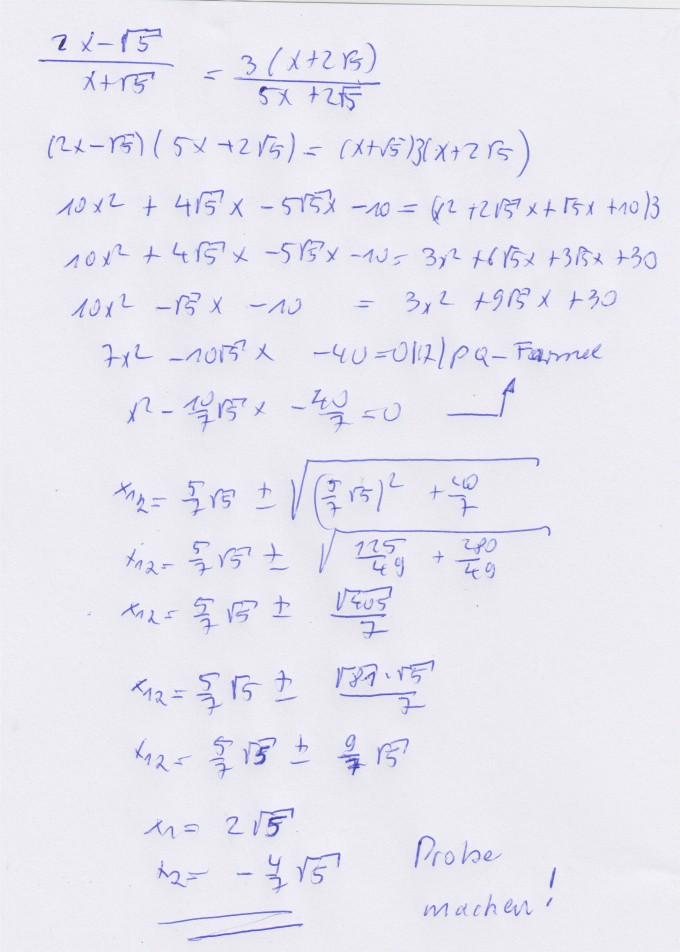 (2x-√5)/(x+√5) = 3(x+2√5)/(5x+2√5)
(2x-√5)(5x+2√5) = (x+√5)3(x+2√5)
10x² + 4√5x - 5√5x - 10 = (x²+2√5x+√5x+10)3
10x² + 4√5x - 5√5x - 10 = 3x²+6√5x+3√5x+30
10x² - √5x - 10 = 3x² + 9√5x + 30
7x² - 10√5x - 40 = 0 |:7 | PQ-Formel
x² - 10/7√5x - 40/7 = 0
x₁₂ = 5/7√5 ± √((5/7√5)² + 40/7)
x₁₂ = 5/7√5 ± √(125/49 + 280/49)
x₁₂ = 5/7√5 ± √405/7
x₁₂ = 5/7√5 ± √81·√5/7
x₁₂ = 5/7√5 ± 9/7√5
x₁ = 2√5
x₂ = -4/7√5
Probe
machen!